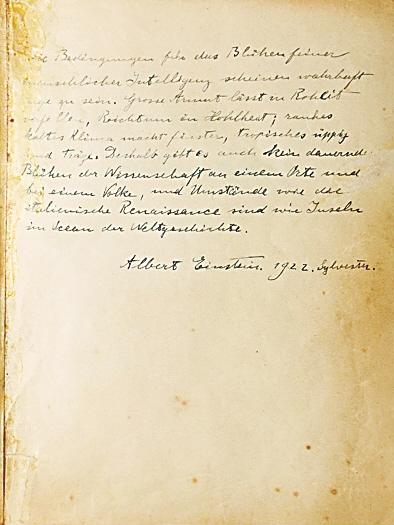 Die Bedingungen für das Blühen feiner
menschlicher Intelligenz scheinen wahrhaft
enge zu sein. Grosse Armut lässt in Rohheit
Reichtum in Hohlheit; rauhes
kaltes Klima macht finster, tropisches üppig
und träge. Deshalb gibt es auch kein dauerndes
Blühen der Wissenschaft an einem Orte und
bei einem Volke, und Umstände wie die
italienische Renaissance sind wie Inseln
im Ocean der Weltgeschichte.
Albert Einstein. 1922. Sylvester.